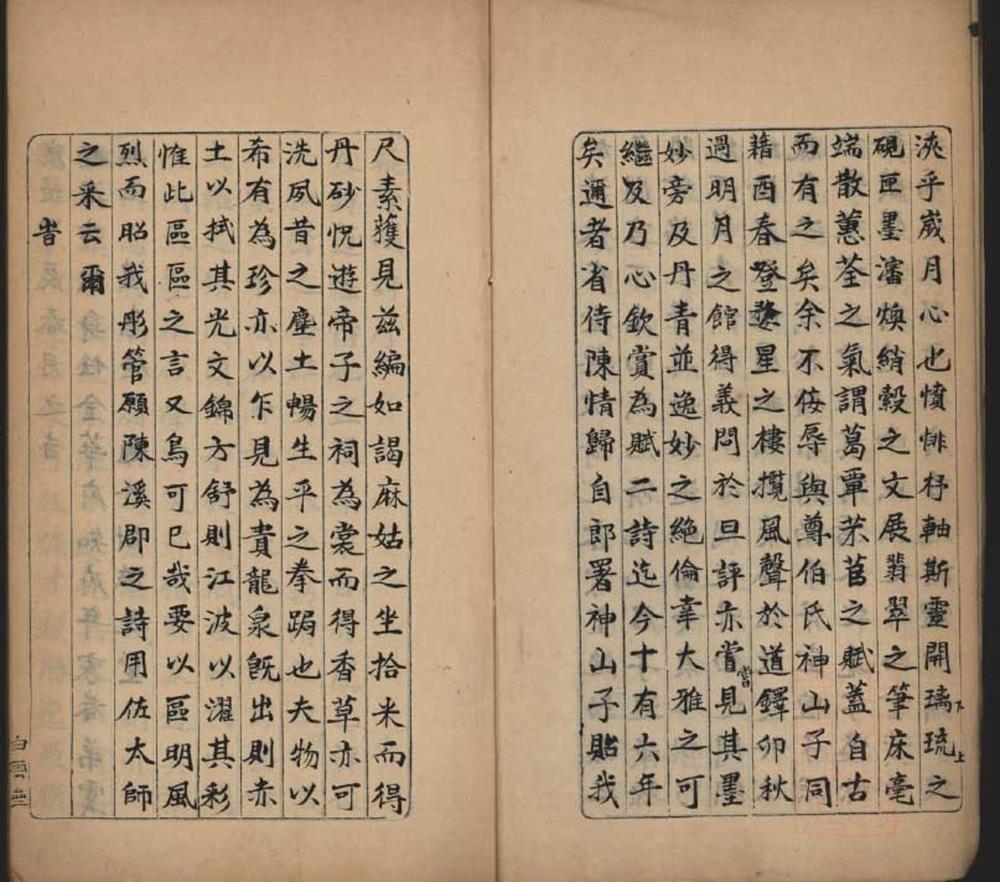 浹乎歲月心也憤悱杼軸斯靈開璃琉之
硯匣墨瀋煥綃縠之文展翡翠之筆床毫
端散蕙荃之氣謂葛覃苤苢之賦蓋自古
而有之矣余不佞辱與尊伯氏神山子同
藉酉春登婺星之樓攬風聲於道鐸卯秋
過明月之館得義問於旦評亦嘗見其墨
妙旁及丹青並逸妙之絶倫幸大雅之可
繼及乃心欽賞為賦二詩迄今十有六年
矣邇者省侍陳情歸自郎署神山子貽我
尺素蒦見茲編如謁麻姑之坐拾米而得
丹砂怳遊帝子之祠為裳而得香草亦可
洗夙昔之塵土暢生平之拳跼也夫物以
希有為珍亦以乍見為貴龍泉旣出則赤
土以拭其光文錦方舒則江波以濯其彩
惟此區區之言又烏可已哉要以區明風
烈而昭我彤管願陳溪郡之詩用佐太師
之采云爾
旹
白雲